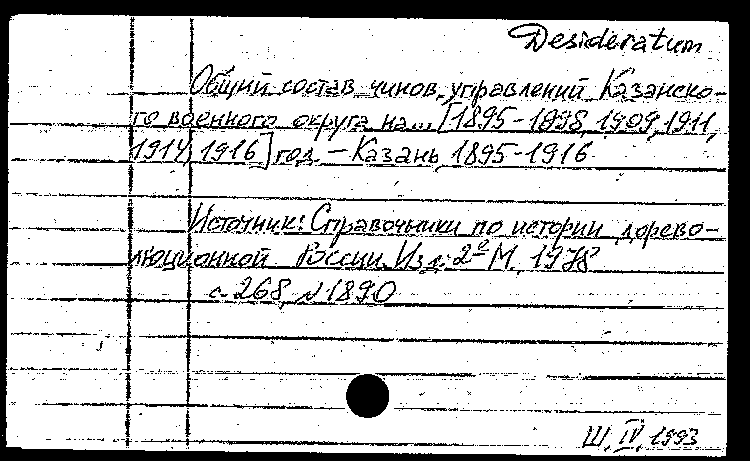 Desideratum
Общий состав чинов управлений Казанско-
го военного округа на... [1895-1898, 1909, 1911,
1914, 1916] год. – Казань, 1895-1916
Источник: Справочники по истории дорево-
люционной России. Изд. 2е М., 1978
с. 268, № 1890
Ш. IV. 1993